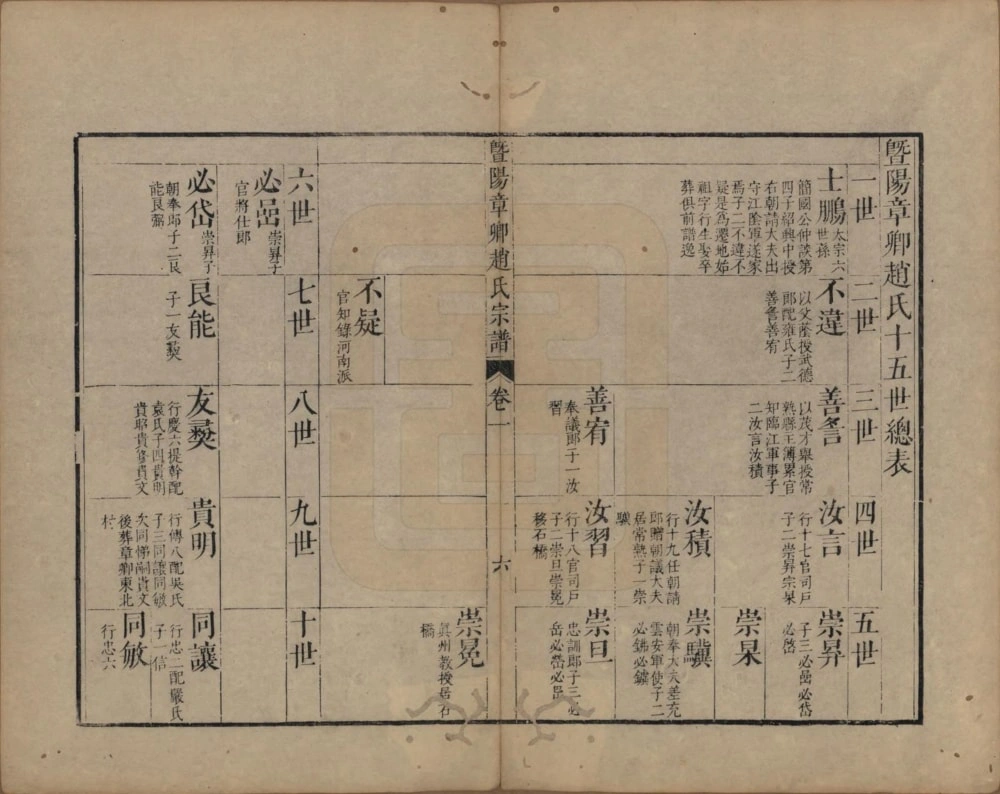 暨陽章卿趙氏十五世總表
一世
二世
三世
四世
五世
士鵬
太宗六
世孫
簡國公仲談第
四子紹興中授
右朝請大夫出
守江陰軍遂家
焉子二不違不
疑是為遷地始
祖字行生娶卒
葬俱前譜逸
不違
以父蔭授武德
郎配雍氏子二
善詧善宥
善詧
以茂才舉授常
熟縣主簿累官
知臨江軍事子
二汝言汝積
汝言
行十七官司戶
子二崇昇宗杲
崇昇
子三必喦必岱
必啓
崇杲
汝積
行十九任朝請
郎贈朝議大夫
居常熟子一崇
驥
崇驥
朝奉大夫差充
雲安軍使子二
必鏽
善宥
奉議郎子一汝
習
汝習
行十八官司戶
子二崇旦崇冕
移石橋
崇旦
忠訓郎子三必
岳必
崇冕
真州教授居石
橋
暨陽章卿趙氏宗譜
卷一
六
不疑
官知錄河南派
六世
七世
八世
九世
十世
必喦
崇昇子
官將仕郎
必岱
崇昇子
朝奉郎子二艮
能艮弼
艮能
子一友龑
友龑
行慶六提幹配
袁氏子四貴明
貴
貴明
行傳八配吳氏
子三同讓同敏
次同悌嗣貴文
後葬章卿東北
村
同讓
行忠二配嚴氏
子一信
同敏
行忠六